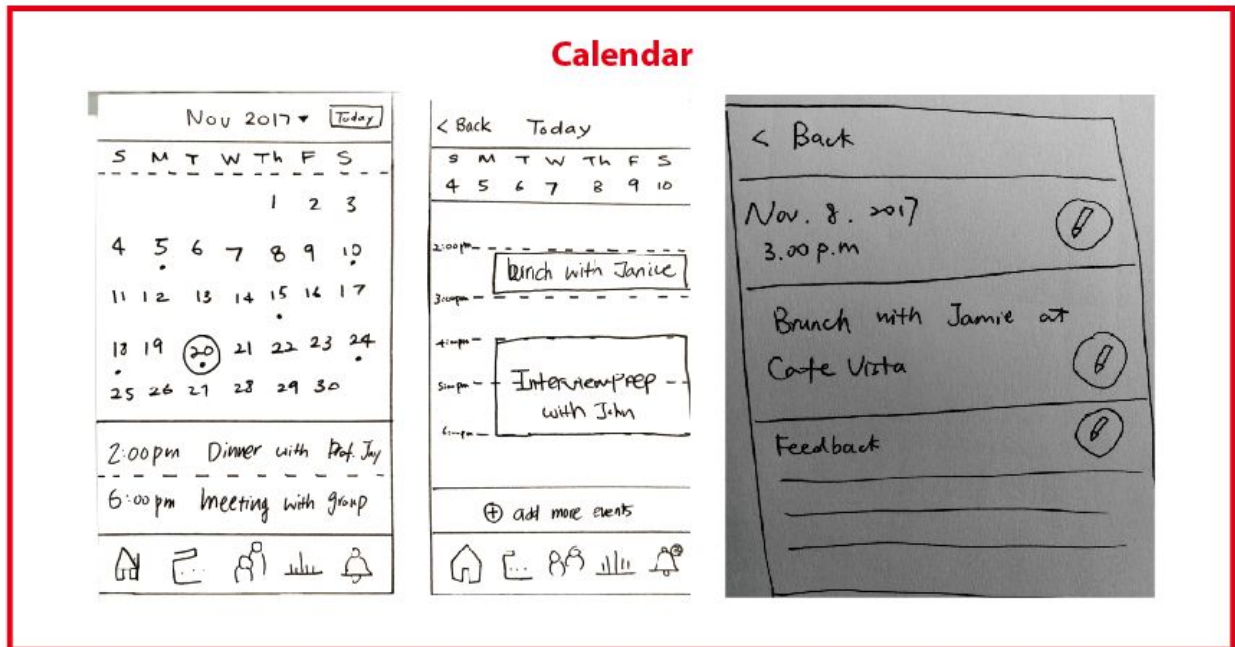 Calendar
Nov 2017 Today
S M T W Th F S
1 2 3
4 5 6 7 8 9 10
11 12 13 14 15 16 17
18 19 20 21 22 23 24
25 26 27 28 29 30
2:00pm Dinner with Prof. Jay
6:00pm meeting with group
< Back Today
S M T W Th F S
4 5 6 7 8 9 10
2:00pm
Brunch with Janice
3:00pm
4:00pm
5:00pm
Interview Prep
with John
add more events
< Back
Nov. 8. 2017
3.00 p.m
Brunch with Jamie at
Cafe Vista
Feedback